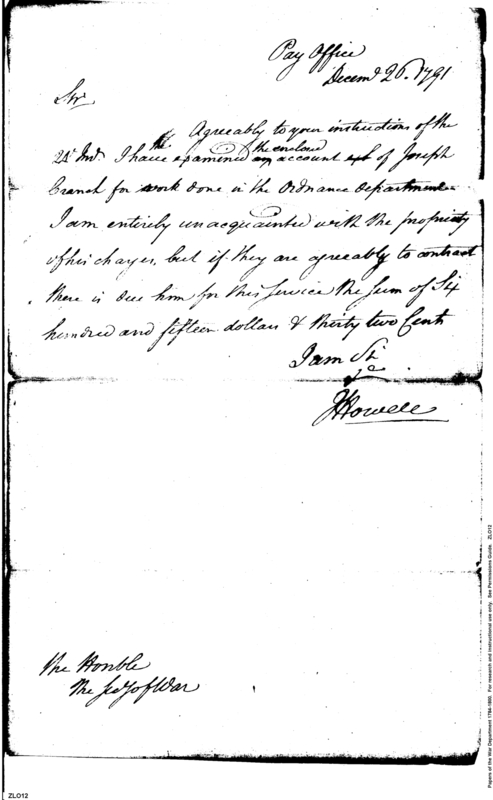 Pay Office
Decemr 26. 1791
Sir
Agreeably to your instructions of the
the enclosed
24th Inst. I have examined an account of Joseph
Cranch for work done in the Ordnance department
I am entirely unacquainted with the propriety
of his charges, but if they are agreeably to contract
there is due him for this service the sum of Six
hundred and fifteen dollars & thirty two Cents
I am Sir
&c
J Howell
The Honble
The Secy of War
ZLO12
Papers of the War Department 1784-1800. For research and instructional use only. See Permissions Guide. ZLO12